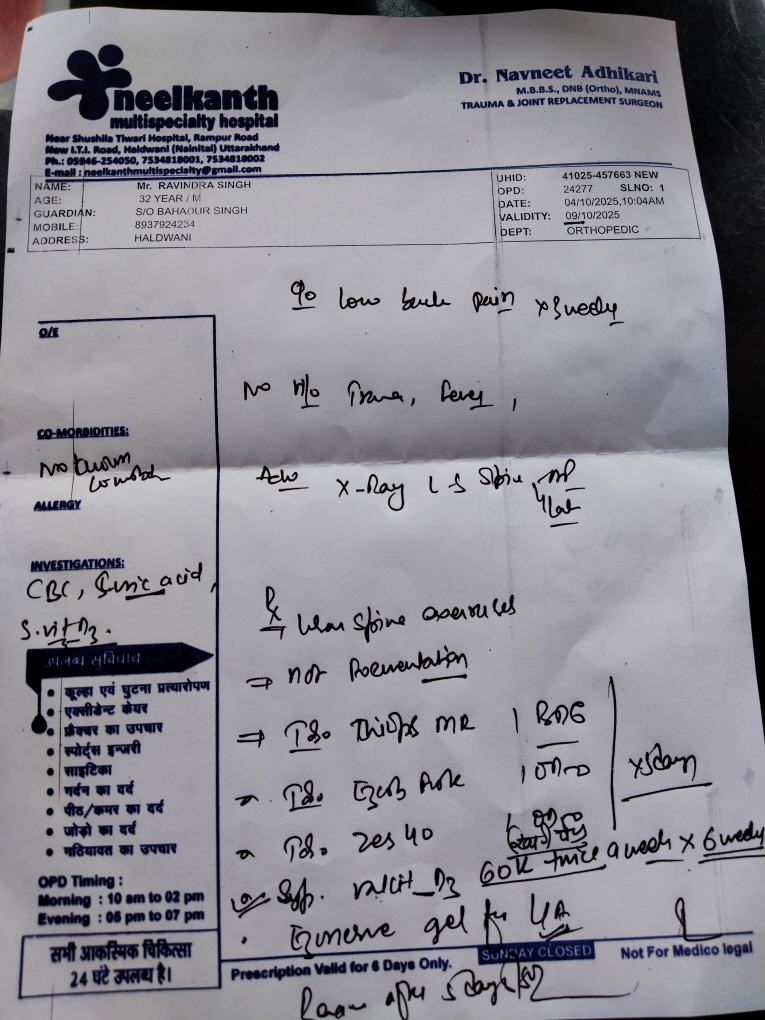 neelkanth
multispecialty hospital
Near Shushila Tiwari Hospital, Rampur Road
New I.T.I. Road, Haldwani (Nainital) Uttarakhand
Ph.: 05946-254050, 7534818001, 7534818002
E-mail : neelkanthmultispecialty@gmail.com
Dr. Navneet Adhikari
M.B.B.S., DNB (Ortho), MNAMS
TRAUMA & JOINT REPLACEMENT SURGEON
NAME: Mr. RAVINDRA SINGH
AGE: 32 YEAR / M
GUARDIAN: S/O BAHADUR SINGH
MOBILE: 8937924234
ADDRESS: HALDWANI
UHID: 41025-457663 NEW
OPD: 24277 SLNO: 1
DATE: 04/10/2025,10:04AM
VALIDITY: 09/10/2025
DEPT: ORTHOPEDIC
O/E
CO-MORBIDITIES:
No known
ALLERGY
INVESTIGATIONS:
CBC, S.uric acid,
S.vit D3.
उपलब्ध सुविधाय
• कूल्हा एवं घुटना प्रत्यारोपण
• एक्सीडेन्ट केयर
• फ्रैक्चर का उपचार
• स्पोर्ट्स इन्जरी
• साइटिका
• गर्दन का दर्द
• पीठ/कमर का दर्द
• जोड़ो का दर्द
• गठियावत का उपचार
OPD Timing :
Morning : 10 am to 02 pm
Evening : 05 pm to 07 pm
सभी आकस्मिक चिकित्सा
24 घंटे उपलब्ध है।
C/o low back pain x 3 weeks
No H/o Trauma, Fever,
Adv X-Ray L S Spine, AP
Lat
Rx spine exercises
⇒ Hot Fomentation
⇒ Tab. MR 1 BDPC
Tab. 1 OD
Tab. 40 1 OD
x 5 days
Syp. D3 60K twice a week x 6 weeks
• gel for LA
SUNDAY CLOSED
Prescription Valid for 6 Days Only.
Not For Medico legal
after 5 days